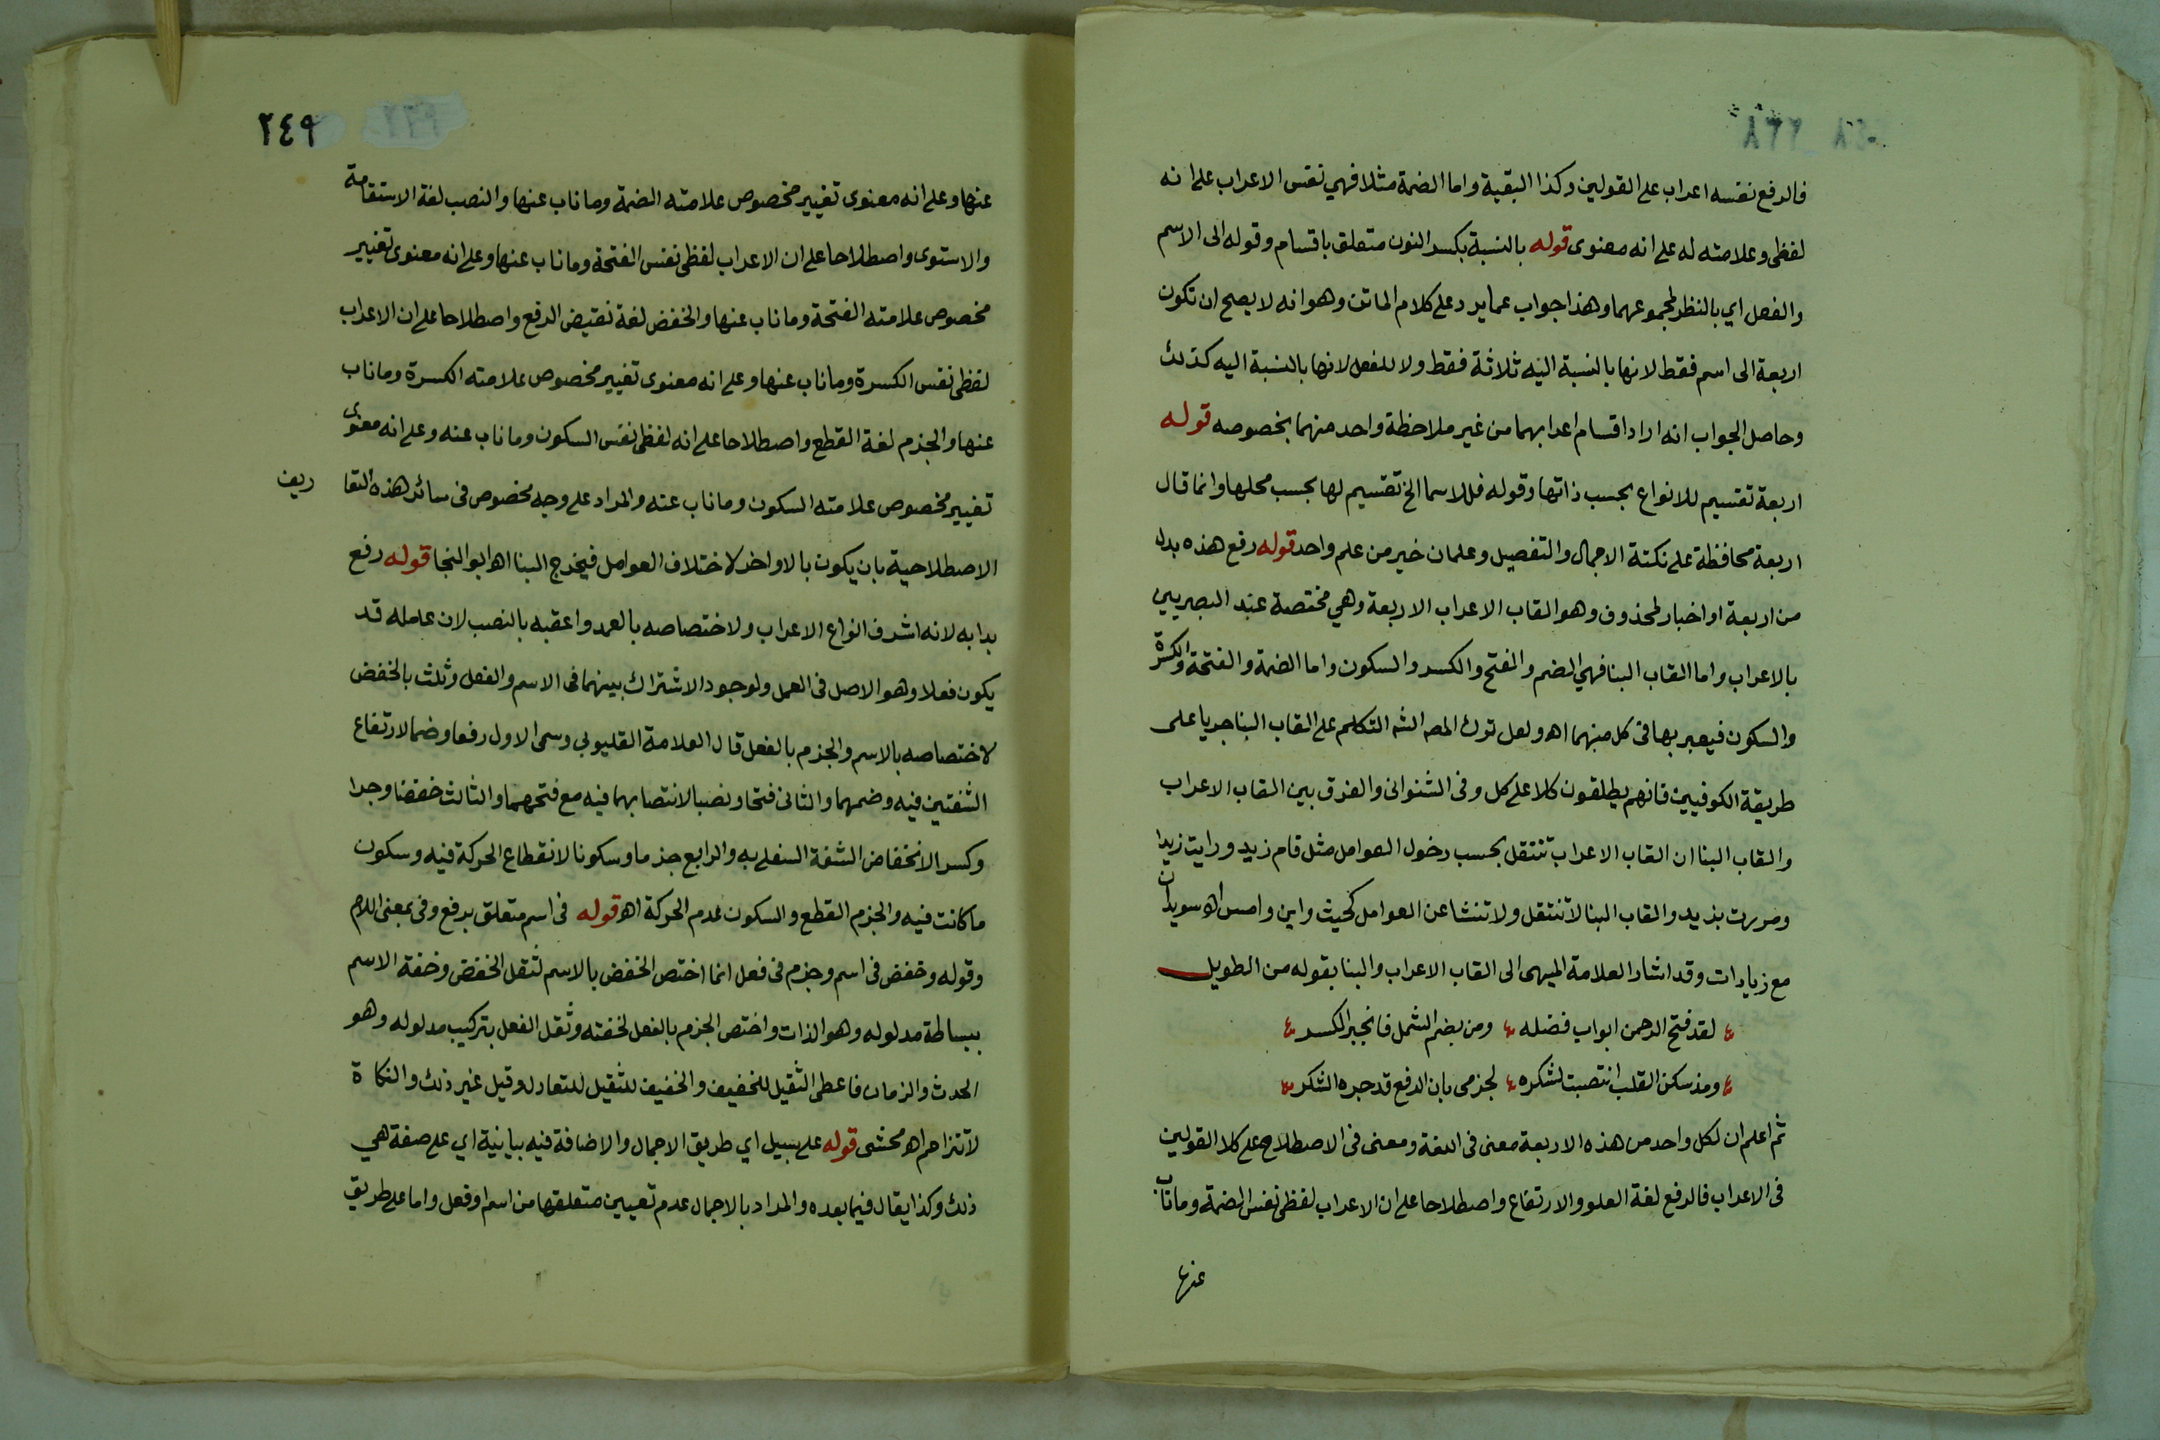 ٢٣٨
فالرفع نفسه اعراب على القولين وكذا البقية واما الضمة مثلا فهي نفس الاعراب على انه
لفظي وعلامته له على انه معنوى قوله بالنسبة بكسر النون متعلق باقسام وقوله الى الاسم
والفعل اي بالنظر لمجموعهما وهذا جواب عما يرد على كلام الماتن وهو انه لا يصح ان تكون
اربعة الى اسم فقط لانها بالنسبة اليه ثلاثة فقط ولا للفعل لانها بالنسبة اليه كذلك
وحاصل الجواب انه اراد اقسام اعرابهما من غير ملاحظة واحد منهما بخصوصه قوله
اربعة تقسيم للانواع بحسب ذاتها وقوله فللاسما الخ تقسيم لها بحسب محلها وانما قال
اربعة محافظة على نكتة الاجمال والتفصيل وعلمان خير من علم واحد قوله رفع هذه بدل
من اربعة او اخبار لمحذوف وهو القاب الاعراب الاربعة وهي مختصة عند البصريين
بالاعراب واما القاب البنا فهي الضم والفتح والكسر والسكون واما الضمة والفتحة والكسرة
والسكون فيعبر بها فى كل منهما اهـ ولعل ترك المصـ الشـ التكلم على القاب البنا جريا على
طريقة الكوفيين فانهم يطلقون كلا على كل وفى الشنوانى والفرق بين القاب الاعراب
والقاب البنا ان القاب الاعراب تنتقل بحسب دخول العوامل مثل قام زيد ورايت زيدا
ومررت بزيد والقاب البنا لا تنتقل ولا تنشا عن العوامل كحيث واين وامس اهـ سويدان
مع زيادات وقد اشار العلامة الميهى الى القاب الاعراب والبنا بقوله من الطويل
لقد فتح الرحمن ابواب فضله ومن بضم الشمل فانجبر الكسر
ومذ سكن القلب انتصبت لشكره لجزمى بان الرفع قد جره الشكر
ثم اعلم ان لكل واحد من هذه الاربعة معنى فى اللغة ومعنى فى الاصطلاح على كلا القولين
فى الاعراب فالرفع لغة العلو والارتفاع واصطلاحا على ان الاعراب لفظى نفس الضمة وما ناب
عنها
٢٤٩
٢٣٩
عنها وعلى انه معنوى تغيير مخصوص علامته الضمة وما ناب عنها والنصب لغة الاستقامة
والاستوى واصطلاحا على ان الاعراب لفظى نفس الفتحة وما ناب عنها وعلى انه معنوى تغيير
مخصوص علامته الفتحة وما ناب عنها والخفض لغة نقيض الرفع واصطلاحا على ان الاعراب
لفظى نفس الكسرة وما ناب عنها وعلى انه معنوى تغيير مخصوص علامته الكسرة وما ناب
عنها والجزم لغة القطع واصطلاحا على انه لفظى نفس السكون وما ناب عنه وعلى انه معنوى
تغيير مخصوص علامته السكون وما ناب عنه والمراد على وجه مخصوص فى سائر هذه التعا ريف
الاصطلاحية بان يكون بالاواخر لاختلاف العوامل فيخرج البنا اهـ ابو النجا قوله رفع
بدا به لانه اشرف انواع الاعراب ولاختصاصه بالعمد واعقبه بالنصب لان عامله قد
يكون فعلا وهو الاصل فى العمل ولوجود الاشتراك بينهما فى الاسم والفعل وثلث بالخفض
لاختصاصه بالاسم والجزم بالفعل قال العلامة القليوبي وسمى الاول رفعا وضما لارتفاع
الشفتين فيه وضمهما والثانى فتحا ونصبا لانتصابهما فيه مع فتحهما والثالث خفضا وجرا
وكسرا لانخفاض الشفة السفلى به والرابع جزما وسكونا لانقطاع الحركة فيه وسكون
ما كانت فيه والجزم القطع والسكون عدم الحركة اهـ قوله فى اسم متعلق برفع وفى بمعنى اللام
وقوله وخفض فى اسم وجزم فى فعل انما اختص الخفض بالاسم لثقل الخفض وخفة الاسم
ببساطة مدلوله وهو الذات واختص الجزم بالفعل لخفته وثقل الفعل بتركيب مدلوله وهو
الحدث والزمان فاعطى الثقيل للخفيف والخفيف للثقيل للتعادل وقيل غير ذلك والنكاة
لا تتزاحم اهـ محشى قوله على سبيل اي طريق الاجمال والاضافة فيه بيانية اي على صفة هي
ذلك وكذا يقال فيما بعده والمراد بالاجمال عدم تعيين متعلقها من اسم او فعل واما على طريق